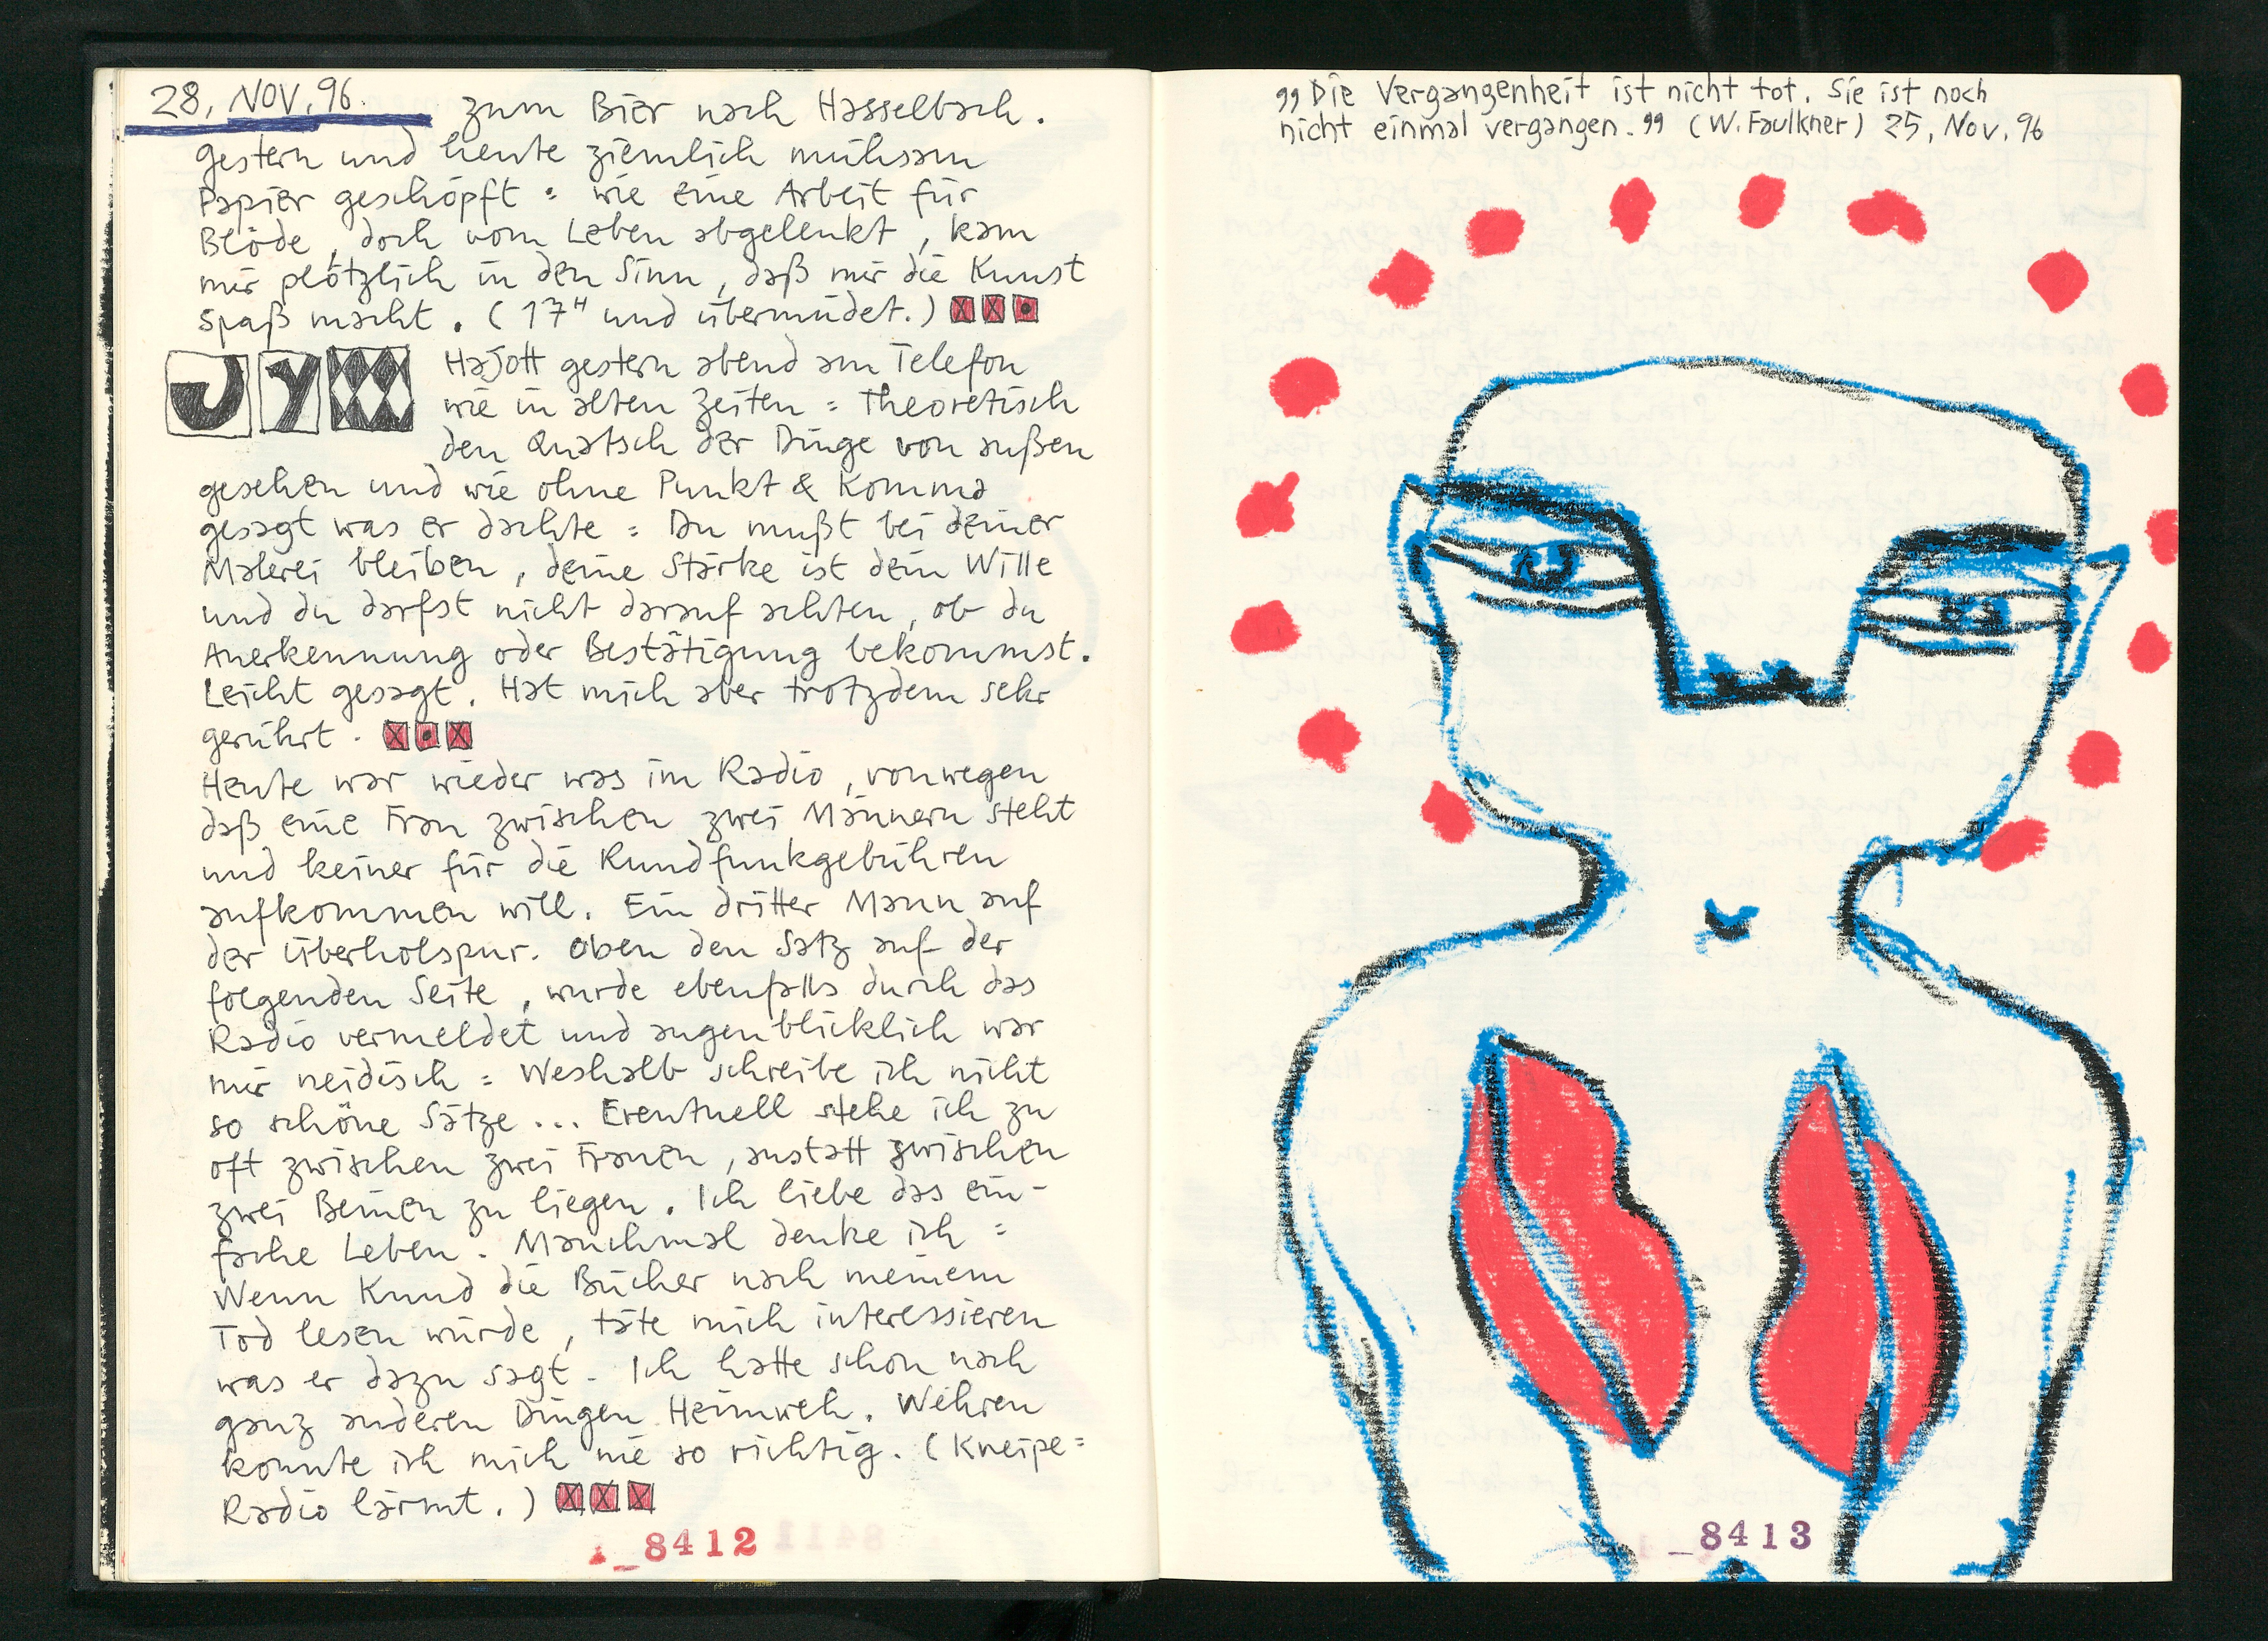 28, NOV. 96. zum Bier nach Hasselbach.
gestern und heute ziemlich mühsam
Papier geschöpft = wie eine Arbeit für
Blöde, doch vom Leben abgelenkt, kam
mir plötzlich in den Sinn, daß mir die Kunst
Spaß macht. (17H und übermüdet.)
JY
HaJott gestern abend am Telefon
wie in alten Zeiten = Theoretisch
den Quatsch der Dinge von außen
gesehen und wie ohne Punkt & Komma
gesagt was er dachte = Du mußt bei deiner
Malerei bleiben, deine Stärke ist dein Wille
und du darfst nicht darauf achten, ob du
Anerkennung oder Bestätigung bekommst.
Leicht gesagt. Hat mich aber trotzdem sehr
gerührt.
Heute war wieder was im Radio, vonwegen
daß eine Frau zwischen zwei Männern steht
und keiner für die Rundfunkgebühren
aufkommen will. Ein dritter Mann auf
der Überholspur. Oben den Satz auf der
folgenden Seite, wurde ebenfalls durch das
Radio vermeldet und augenblicklich war
mir neidisch = Weshalb schreibe ich nicht
so schöne Sätze... Eventuell stehe ich zu
oft zwischen zwei Frauen, anstatt zwischen
zwei Beinen zu liegen. Ich liebe das ein-
fache Leben. Manchmal denke ich =
Wenn Knud die Bücher nach meinem
Tod lesen würde, täte mich interessieren
was er dazu sagt. Ich hatte schon nach
ganz anderen Dingen Heimweh. Wehren
konnte ich mich nie so richtig. (Kneipe=
Radio lärmt.)
_8412
„Die Vergangenheit ist nicht tot. Sie ist noch
nicht einmal vergangen.„ (W. Faulkner) 25, Nov. 96
_8413